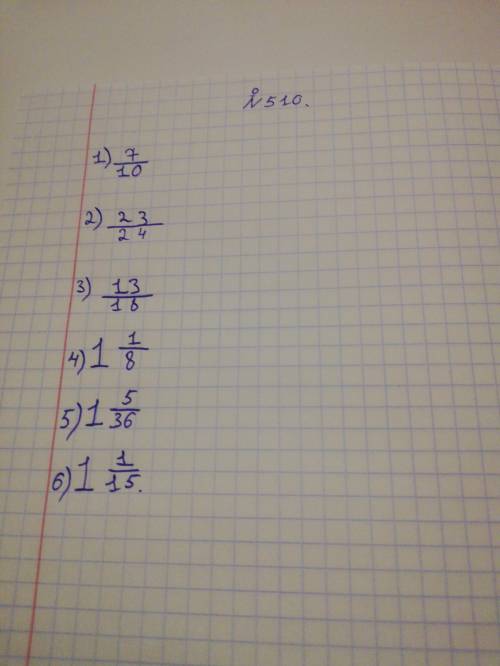 №510.
1) 7/10
2) 23/24
3) 13/18
4) 1 1/8
5) 1 5/36
6) 1 1/15.